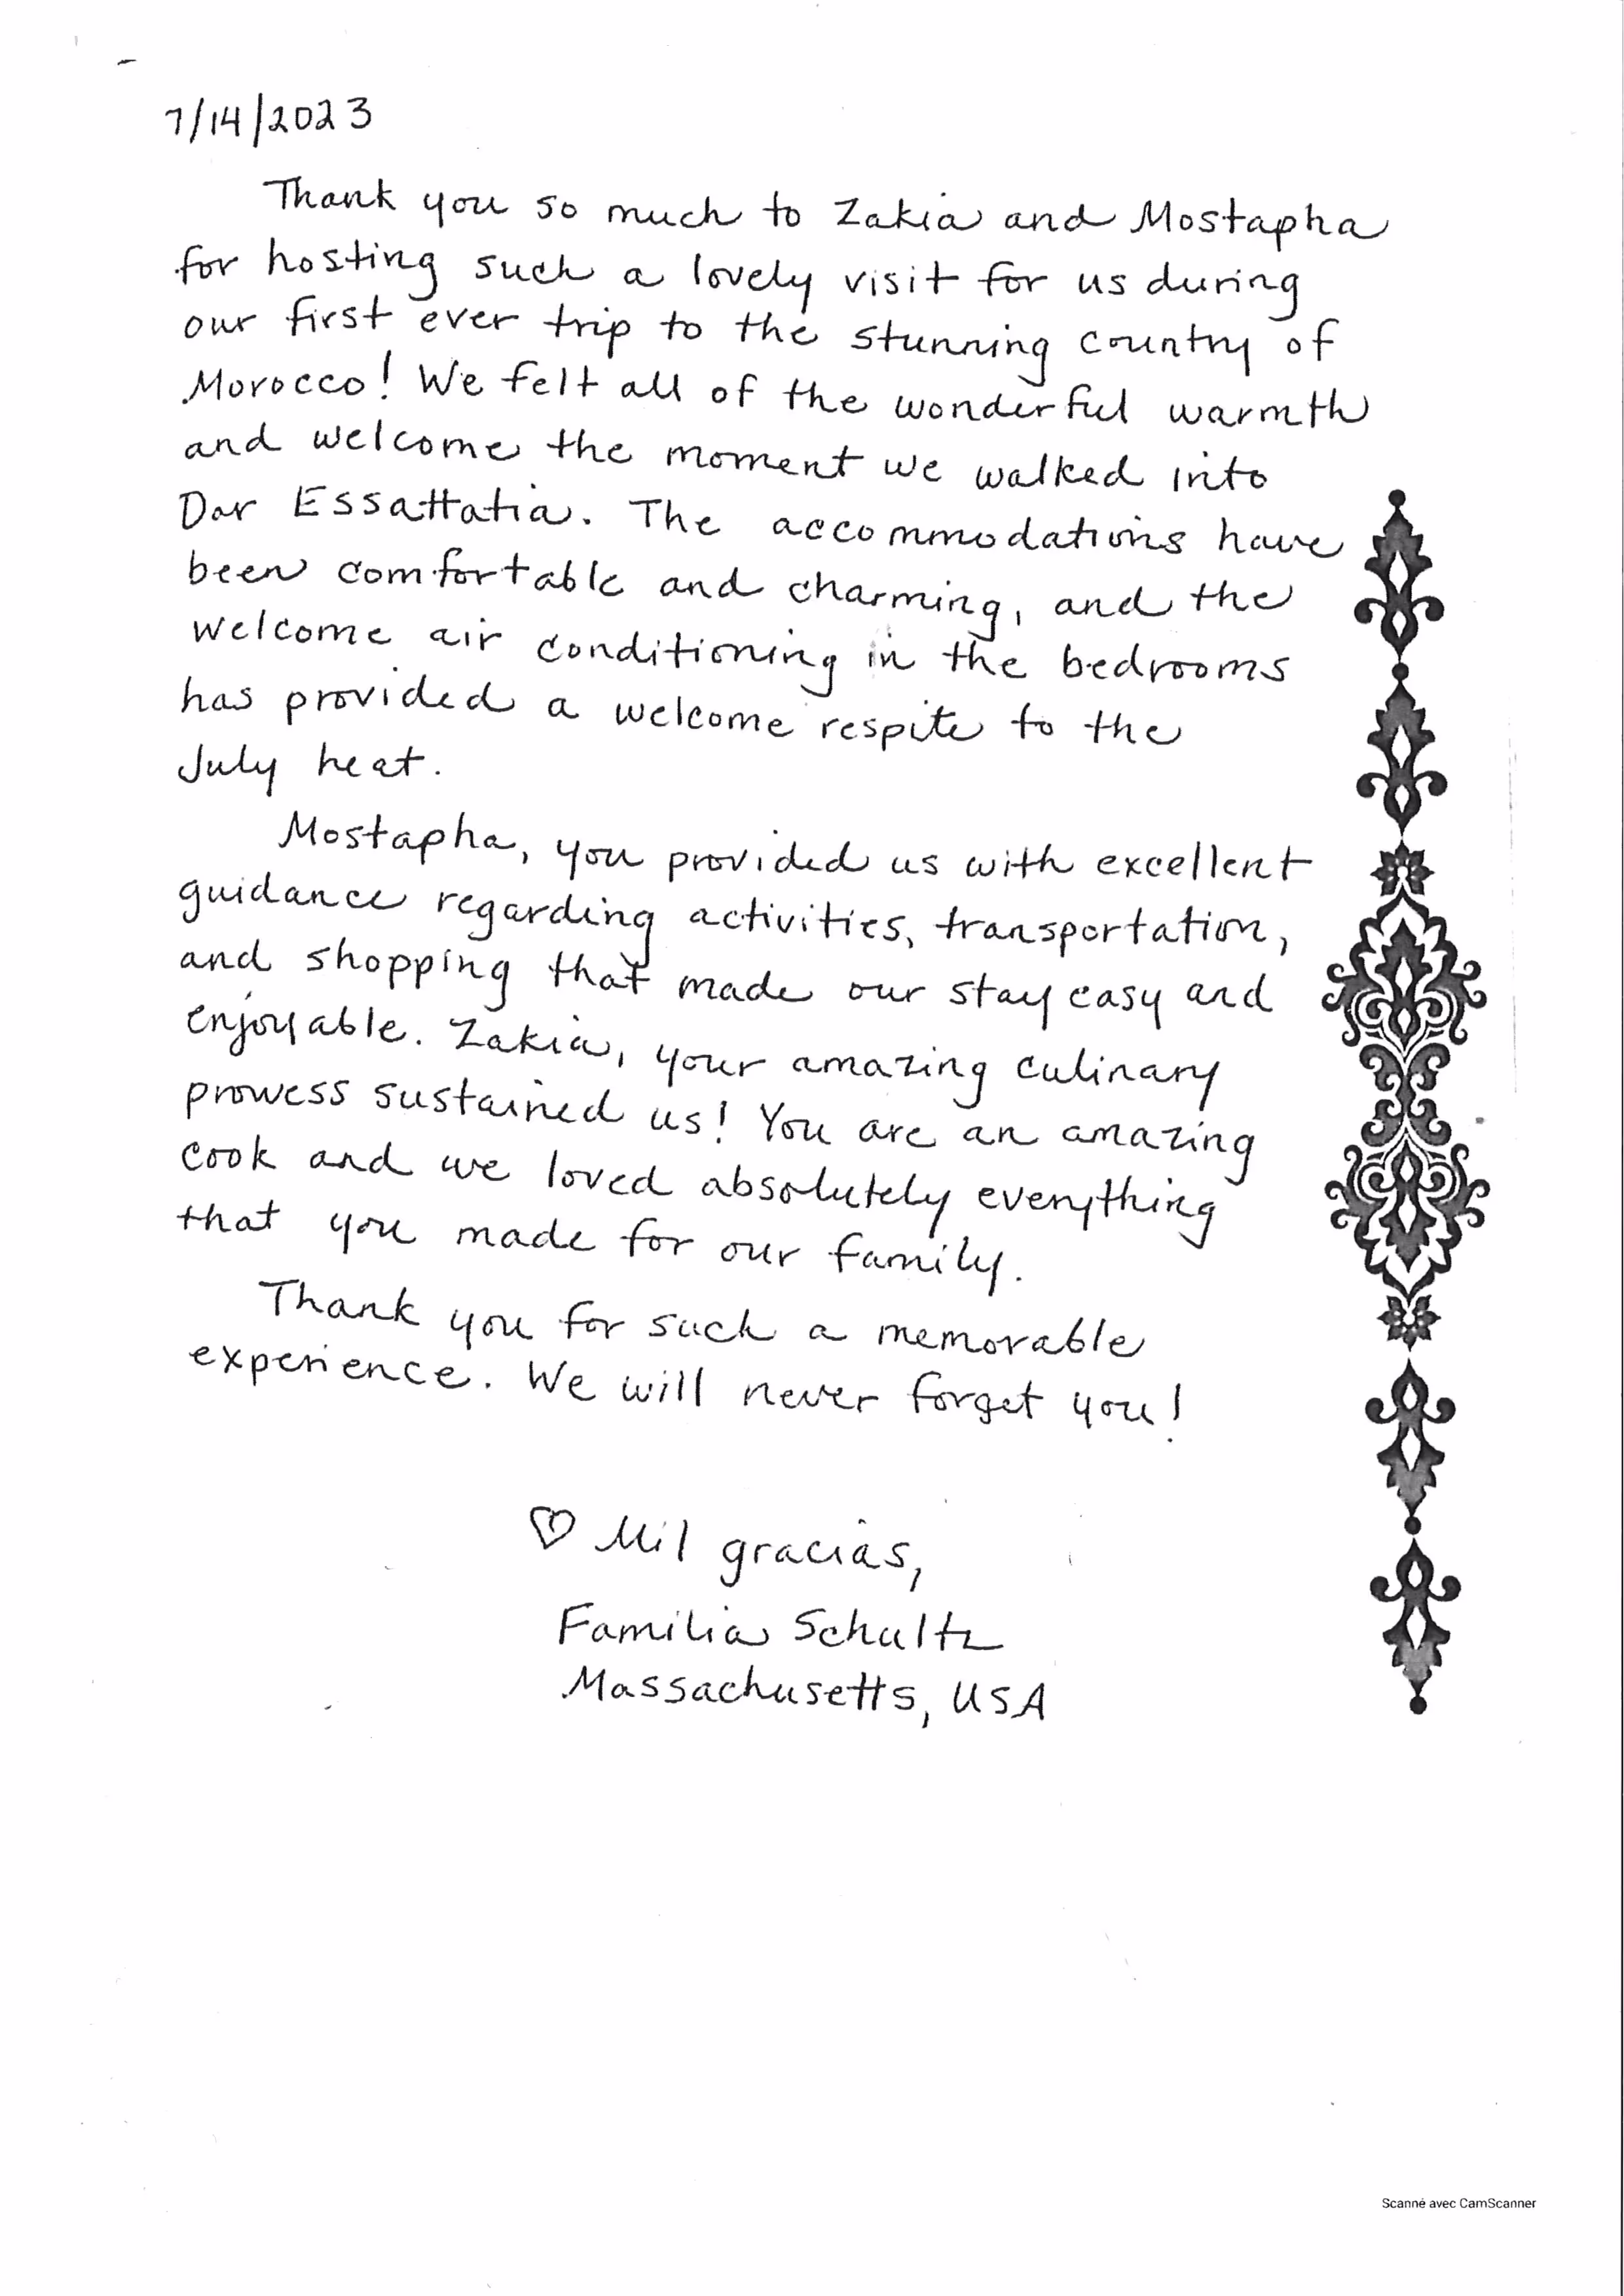 7/14/2023
Thank you so much to Zakia and Mostapha
for hosting such a lovely visit for us during
our first ever trip to the stunning country of
Morocco! We felt all of the wonderful warmth
and welcome the moment we walked into
Dar Essattatia. The accommodations have
been comfortable and charming, and the
welcome air conditioning in the bedrooms
has provided a welcome respite to the
July heat.
Mostapha, you provided us with excellent
guidance regarding activities, transportation,
and shopping that made our stay easy and
enjoyable. Zakia, your amazing culinary
prowess sustained us! You are an amazing
cook and we loved absolutely everything
that you made for our family.
Thank you for such a memorable
experience. We will never forget you!
♡ Mil gracias,
Familia Schultz
Massachusetts, USA
Scanné avec CamScanner